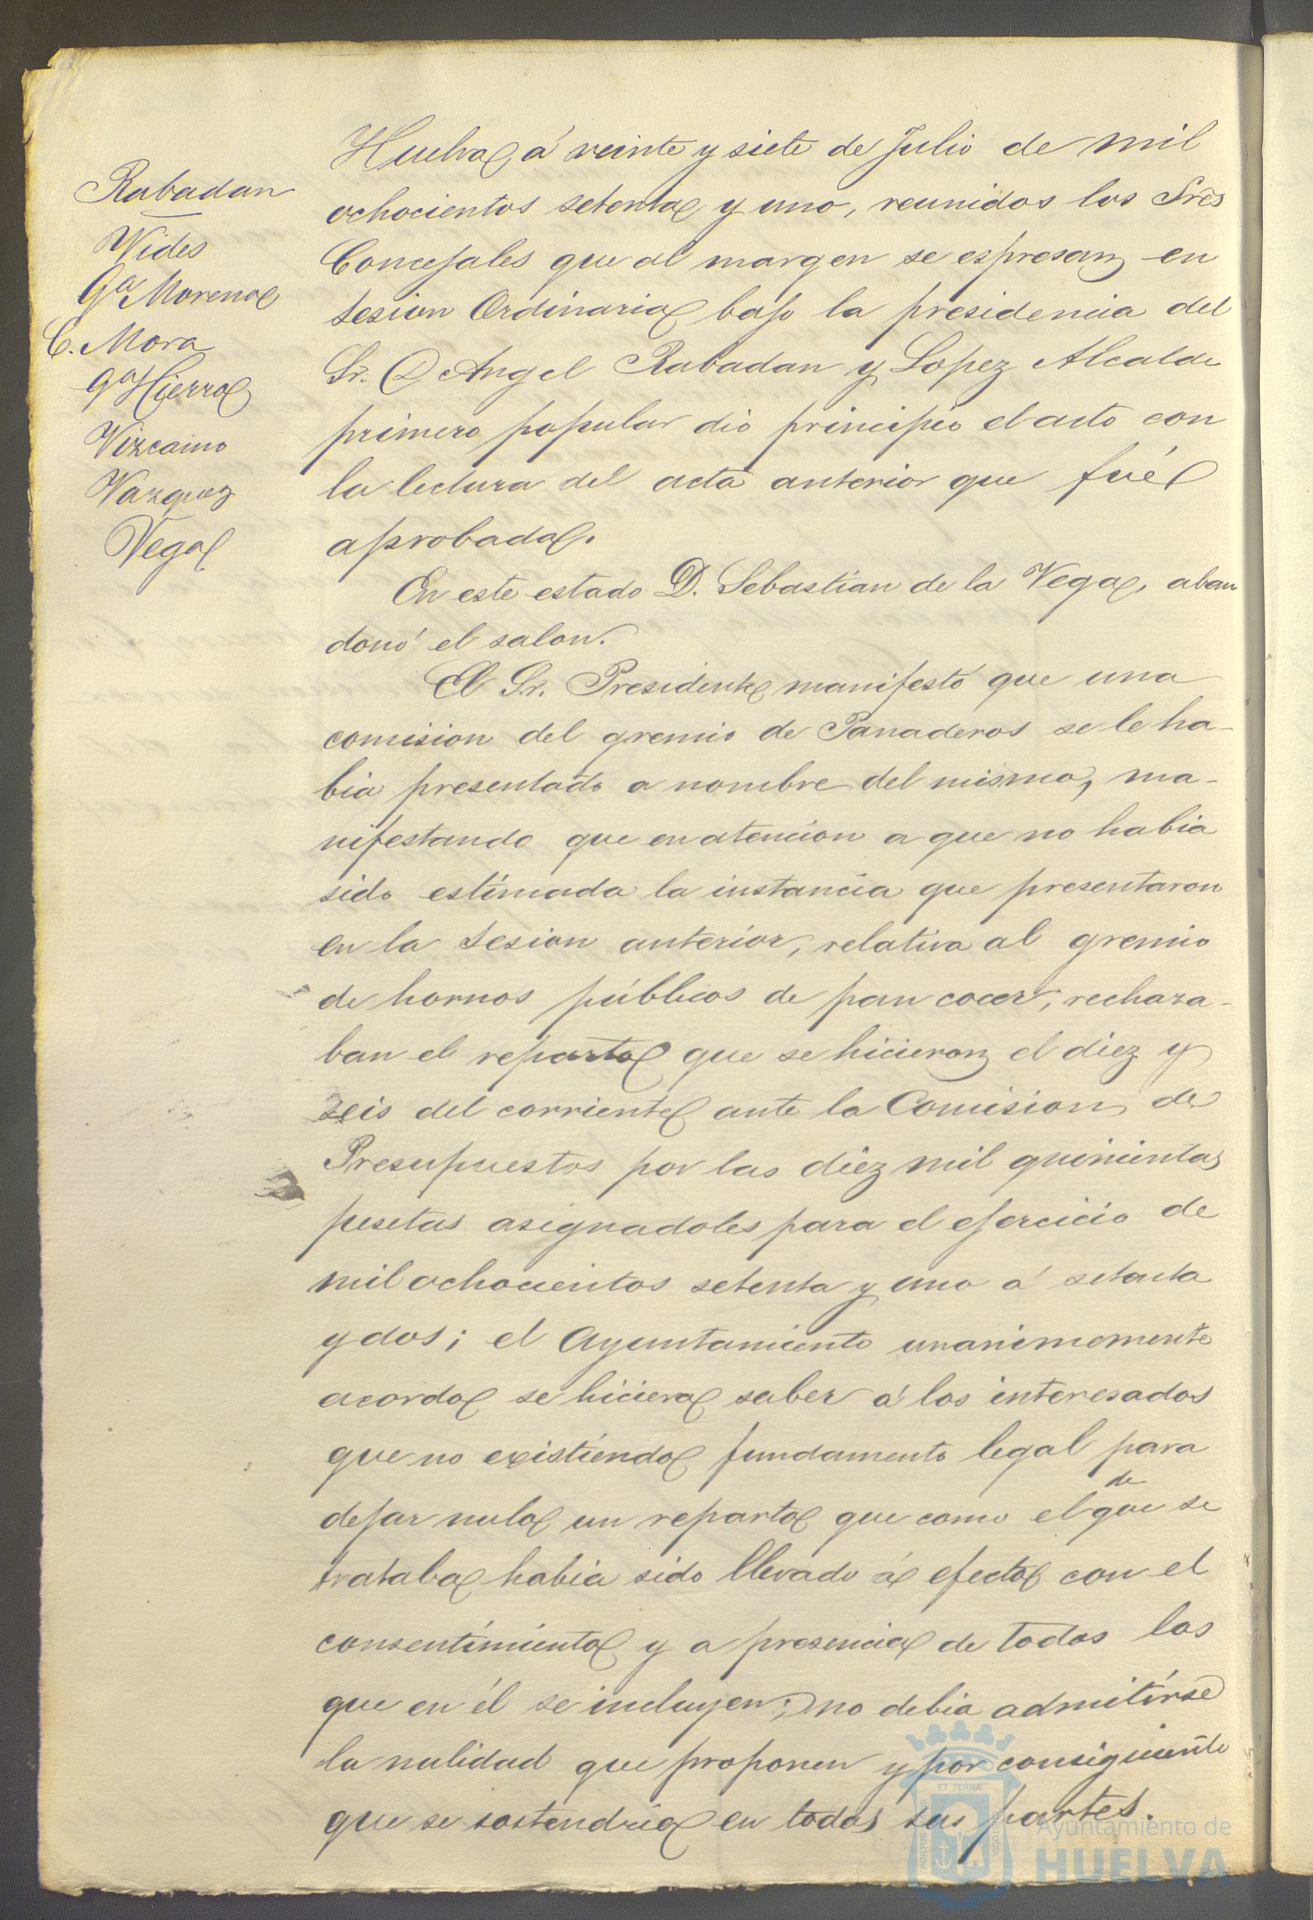 Rabadan
Vides
Gª Morena
C. Mora
Gª Hierro
Vizcaino
Vazquez
Vega
Huelva á veinte y siete de Julio de mil
ochocientos setenta y uno, reunidos los Sres
Concejales que al margen se espresan en
sesion Ordinaria bajo la presidencia del
Sr. D Angel Rabadan y Lopez Alcalde
primero popular dió principio el acto con
la lectura del acta anterior que fué
aprobada.
En este estado D. Sebastian de la Vega, aban
donó el salon.
El Sr. Presidente manifestó que una
comision del gremio de Panaderos se le ha-
bia presentado a nombre del mismo, ma-
nifestando que en atencion a que no habia
sido estimada la instancia que presentaron
en la sesion anterior, relativa al gremio
de hornos públicos de pan cocer, rechaza-
ban el reparto que se hicieron el diez y
seis del corriente ante la Comision de
Presupuestos por las diez mil quinientas
pesetas asignadoles para el ejercicio de
mil ochocientos setenta y uno á setenta
y dos; el Ayuntamiento unanimemente
acordo se hiciera saber á los interesados
que no existiendo fundamento legal para
dejar nulo un reparto que como el de que se
trataba habia sido llevado á efecto con el
consentimiento y a presencia de todos los
que en él se incluyen; no debia admitirse
la nulidad que proponen y por consiguiente
que se sostendria en todas sus partes.
Ayuntamiento de
HUELVA